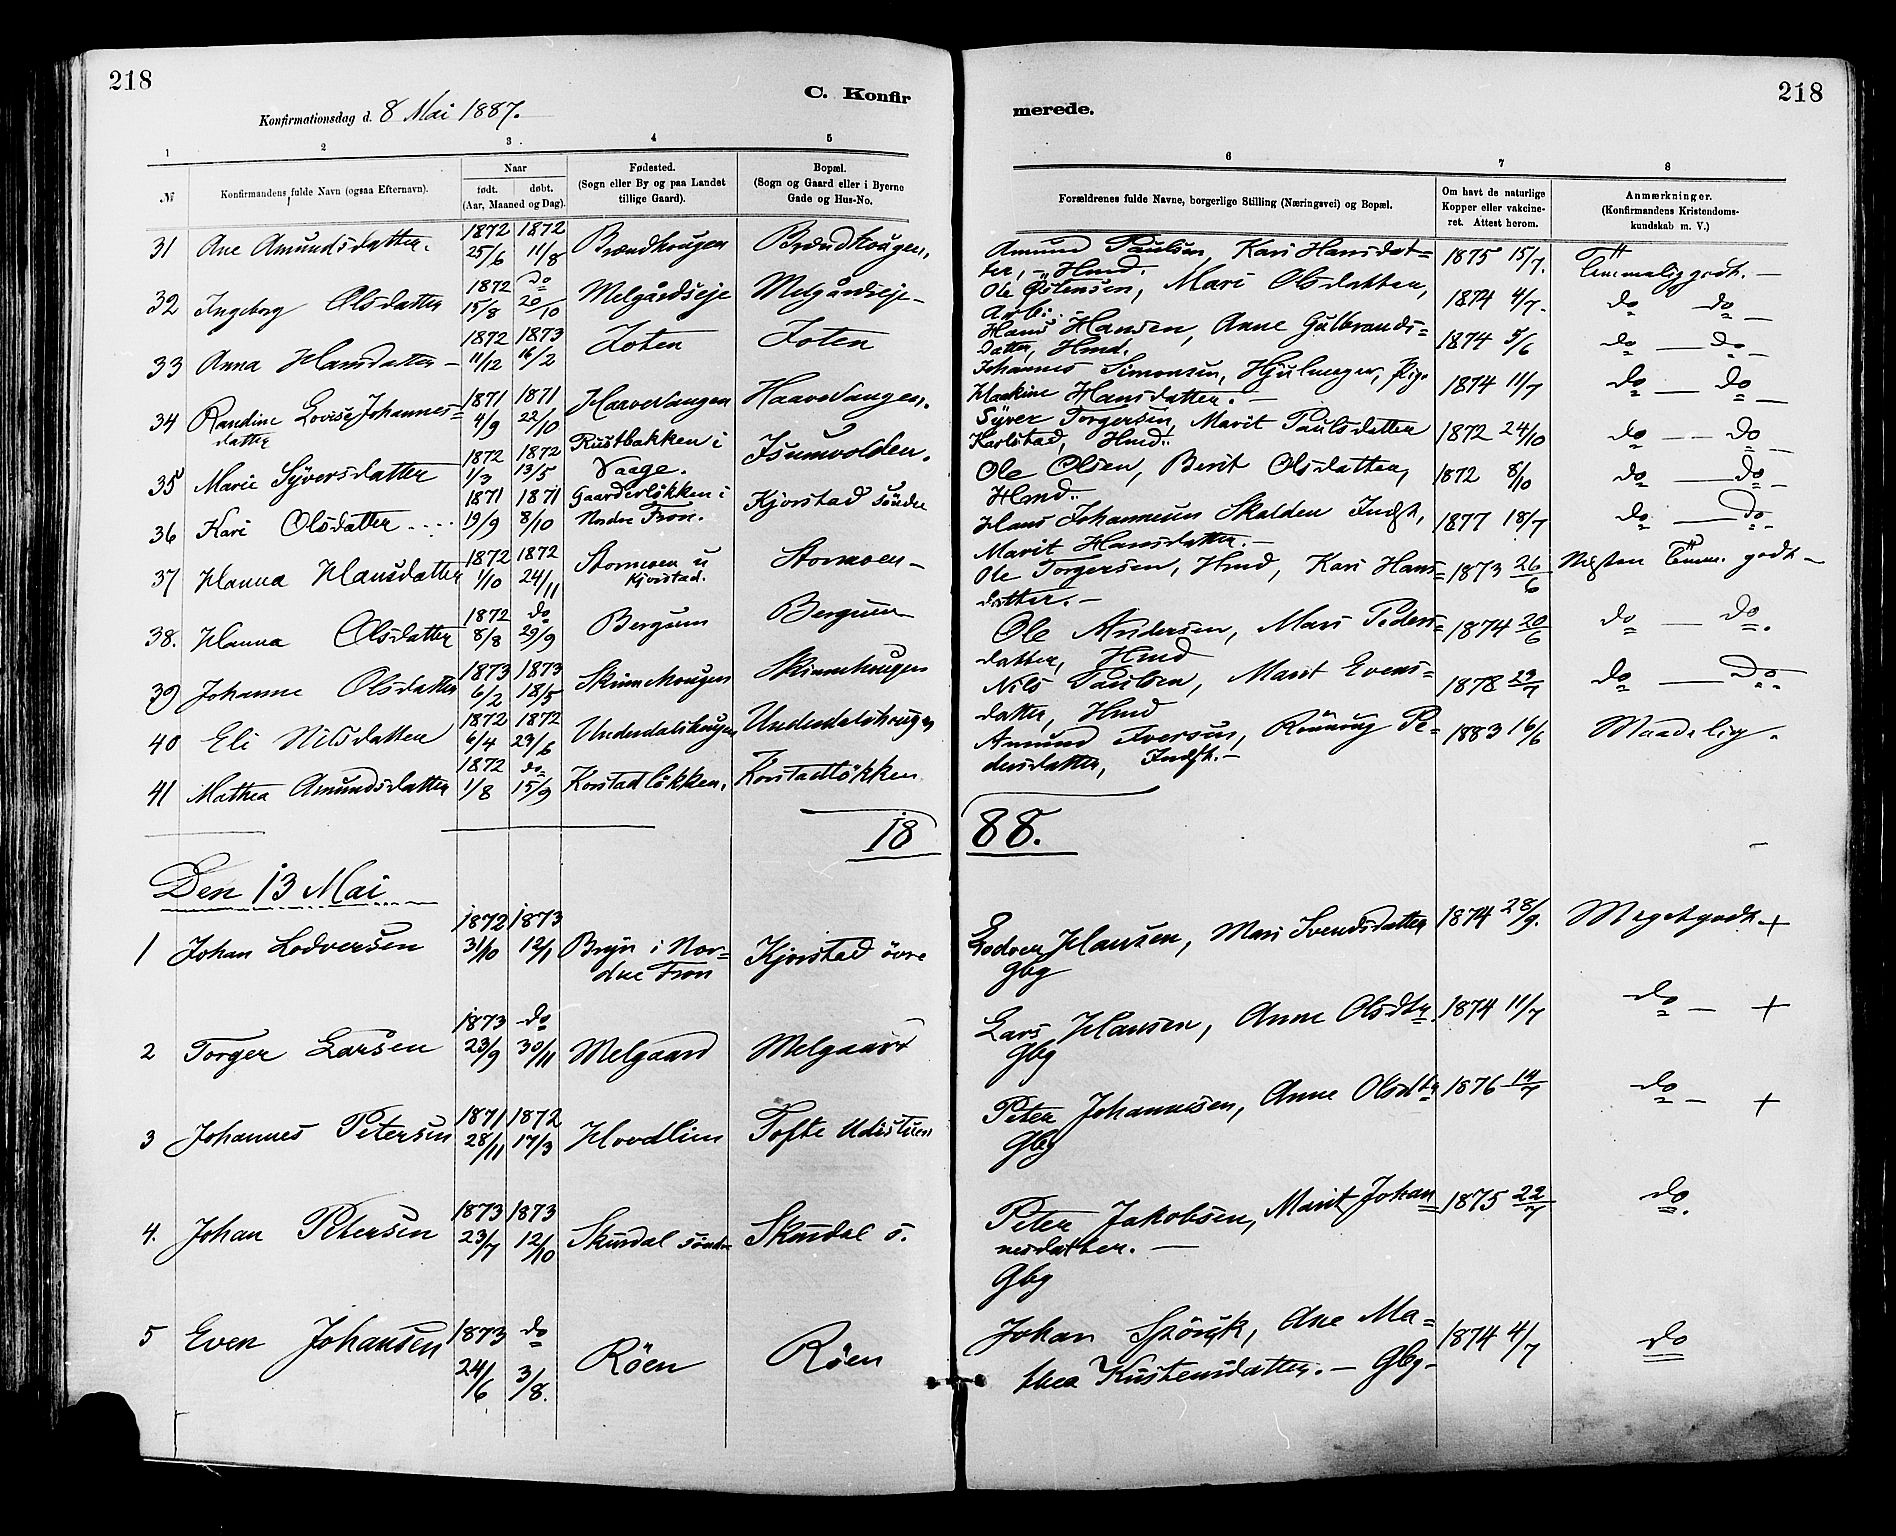 218
C. Konfir
merede.
218
Konfirmationsdag d. 8 Mai 1887.
1 2 3. 4 5 6 7 8
№
Konfirmandens fulde Navn (ogsaa Efternavn).
Naar
født. døbt.
(Aar, Maaned og Dag).
Fødested.
(Sogn eller By og paa Landet
tillige Gaard).
Bopæl.
(Sogn og Gaard eller i Byerne
Gade og Hus-No.
Forældrenes fulde Navne, borgerlige Stilling (Næringsvei) og Bopæl.
Om havt de naturlige
Kopper eller vakcine-
ret. Attest herom.
Anmærkninger.
(Konfirmandens Kristendoms-
kundskab m. V.)
31 Ane Amundsdatter. 1872 25/6 1872 11/8 Brændhougen Brændhougen. Amund Paulsen, Kari Hansdat=
ter, - Hmd. 1875 15/7. Temmelig godt. -
32 Ingeborg Olsdatter 1872 15/8 do 20/10 Melgårdseje Melgårdseje- Ole Östensen, Mari Olsdatter,
Arb. 1874 4/7. do do -
33 Anna Hansdatter - 1872 11/12 1873 16/2 Loten Loten Hans Hansen, Anne Gulbrands=
datter, Hmd. 1874 5/6 do - do -
34 Randine Lovise Johannes=
datter 1871 4/9 1871 22/10 Haavevangen Haavevangen. Johannes Simonsen, Hjulmager,
Haakine Hansdatter. - 1874 11/7 do - do -
35 Marie Syversdatter 1872 1/3 1872 13/5 Rustbakken i
Vaage. Isumvolden. Syver Torgersen, Marit Paulsdatter
Karlstad, Hmd. 1872 24/10 do - - do -
36 Kari Olsdatter .... 1871 19/9 1871 8/10 Gaarderløkken i
Nordre Fron. Kjorstad söndre Ole Olsen, Berit Olsdatter,
Hmd. 1872 8/10 do - do -
37 Hanna Hansdatter 1872 1/10 1872 24/11 Stormoen u
Kjorstad. Stormoen - Hans Johannesen Skalden Indst,
Marit Hansdatter. - 1877 18/7 do - do -
38. Hanna Olsdatter 1872 8/8 do 29/9 Bergum Bergum Ole Torgersen, Hmd, Kari Hans=
datter. - 1873 26/6 Næsten Temm. godt -
39 Johanne Olsdatter 1873 6/2 1873 18/5 Skinnehougen Skinnehougen Ole Andersen, Mari Peders=
datter, Hmd 1874 20/6 do - do.
40 Eli Nilsdatter 1872 6/4 1872 23/6 Underdalshougen Underdalshougen Nils Paulsen, Marit Evens=
datter, Hmd 1878 29/7 do - do.
41 Mathea Amundsdatter 1872 1/8 do 15/9 Korstadløkken. Korstadløkken Amund Iversen, Rönnug Pe=
dersdatter, Indst. - 1883 16/6 Maadelig.
18 88.
Den 13 Mai
1 Johan Lodversen 1872 31/10 1873 12/1 Bryn i Nor=
dre Fron Kjorstad övre Lodver Hansen, Mari Svendsdatter
Gbg 1874 28/9. Meget godt +
2 Torger Larsen 1873 23/9 do 30/11 Melgaard Melgaard Lars Hansen, Anne Olsdtr
Gbg 1874 11/7 do - +
3 Johannes Petersen 1871 28/11 1872 17/3 Hovdlien Tofte Udistuen Peter Johannesen, Anne Olsdtr
Gbg 1876 19/7 do - +
4. Johan Petersen 1873 23/7 1873 12/10 Skurdal söndre Skurdal s. Peter Jakobsen, Marit Johan=
nesdatter. -
Gbg 1875 22/7 do.
5 Even Johansen 1873 24/6 do 3/8. Röen Röen Johan Ane Ma=
thea Kristensdatter. - Gbg- 1874 4/7 do